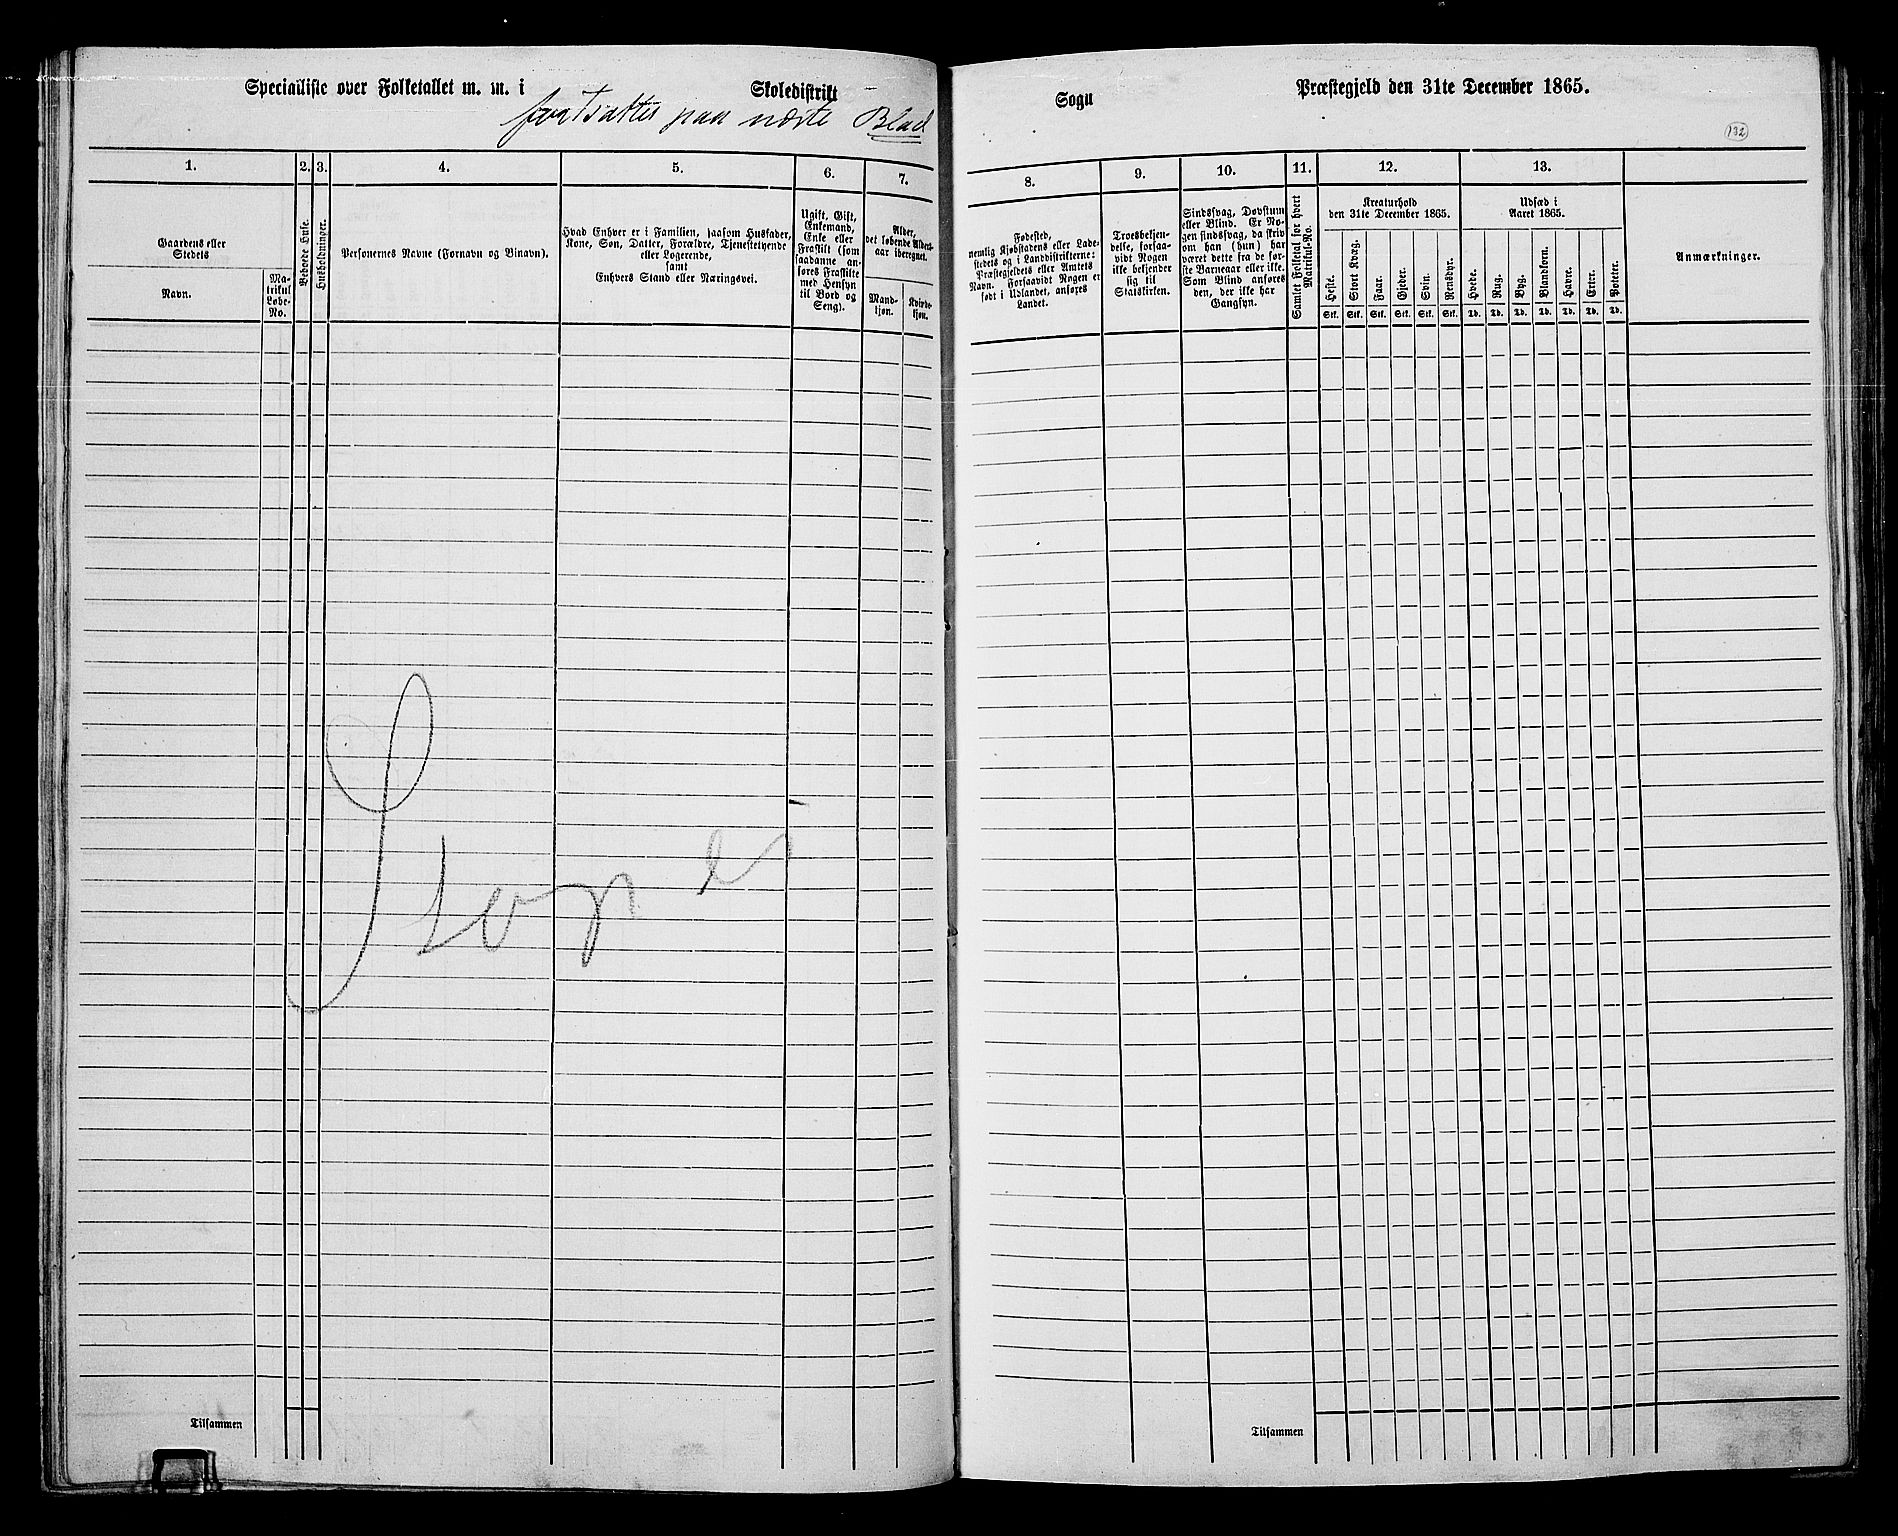 Specialliste over Folketallet m. m. i Skoledistrikt Sogn Præstegjeld den 31te December 1865.
fortsættes paa næste Blad
132
1. 2. 3. 4. 5. 6. 7. 8. 9. 10. 11. 12. 13.
Gaardens eller
Stedets
Navn.
Ma-
trikul
Løbe-
No.
Beboede Huse.
Husholdninger.
Personernes Navne (Fornavn og Binavn).
Hvad Enhver er i Familien, saasom Husfader,
Kone, Søn, Datter, Forældre, Tjenestetyende
eller Logerende,
samt
Enhvers Stand eller Næringsvei.
Ugift, Gift,
Enkemand,
Enke eller
Fraskilt (som
saadanne an-
føres Fraskilte
med Hensyn
til Bord og
Seng).
Alder,
det løbende Alders-
aar iberegnet.
Mand-
kjøn.
Kvinde-
kjøn.
Fødested,
nemlig Kjøbstadens eller Lade-
stedets og i Landdistrikterne:
Præstegjeldets eller Amtets
Navn. Forsaavidt Nogen er
født i Udlandet, anføres
Landet.
Troesbekjen-
delse, forsaa-
vidt Nogen
ikke bekjender
sig til
Statskirken.
Sindssvag, Døvstum
eller Blind. Er No-
gen sindssvag, da skriv
om han (hun) har
været dette fra de før-
ste Barneaar eller ikke.
Som Blind anføres
den, der ikke har
Gangsyn.
Samlet Folketal for hvert
Matrikul-No.
Kreaturhold
den 31te December 1865.
Heste.
Stort Kvæg.
Faar.
Gjeder.
Svin.
Rensdyr.
Stk. Stk. Stk. Stk. Stk. Stk.
Udsæd i
Aaret 1865.
Hvede.
Rug.
Byg.
Blandkorn.
Havre.
Erter.
Poteter.
Td. Td. Td. Td. Td. Td. Td.
Anmærkninger.
Tilsammen
Tilsammen